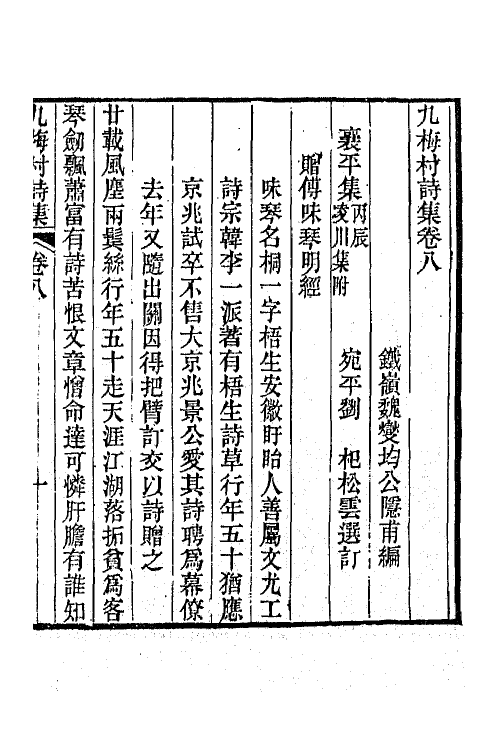 九梅村詩集卷八
鐵嶺魏燮均公隱甫編
襄平集丙辰凌川集附
宛平劉　杞松雲選訂
贈傅味琴明經
味琴名桐一字梧生安徽盱眙人善屬文尤工
詩宗韓李一派著有梧生詩草行年五十猶應
京兆試卒不售大京兆景公愛其詩聘爲幕僚
去年又隨出關因得把臂訂交以詩贈之
廿載風塵兩鬢絲行年五十走天涯江湖落拓貧爲客
琴劒飄蕭富有詩苦恨文章憎命達可憐肝膽有誰知
九梅村詩集
卷八
一